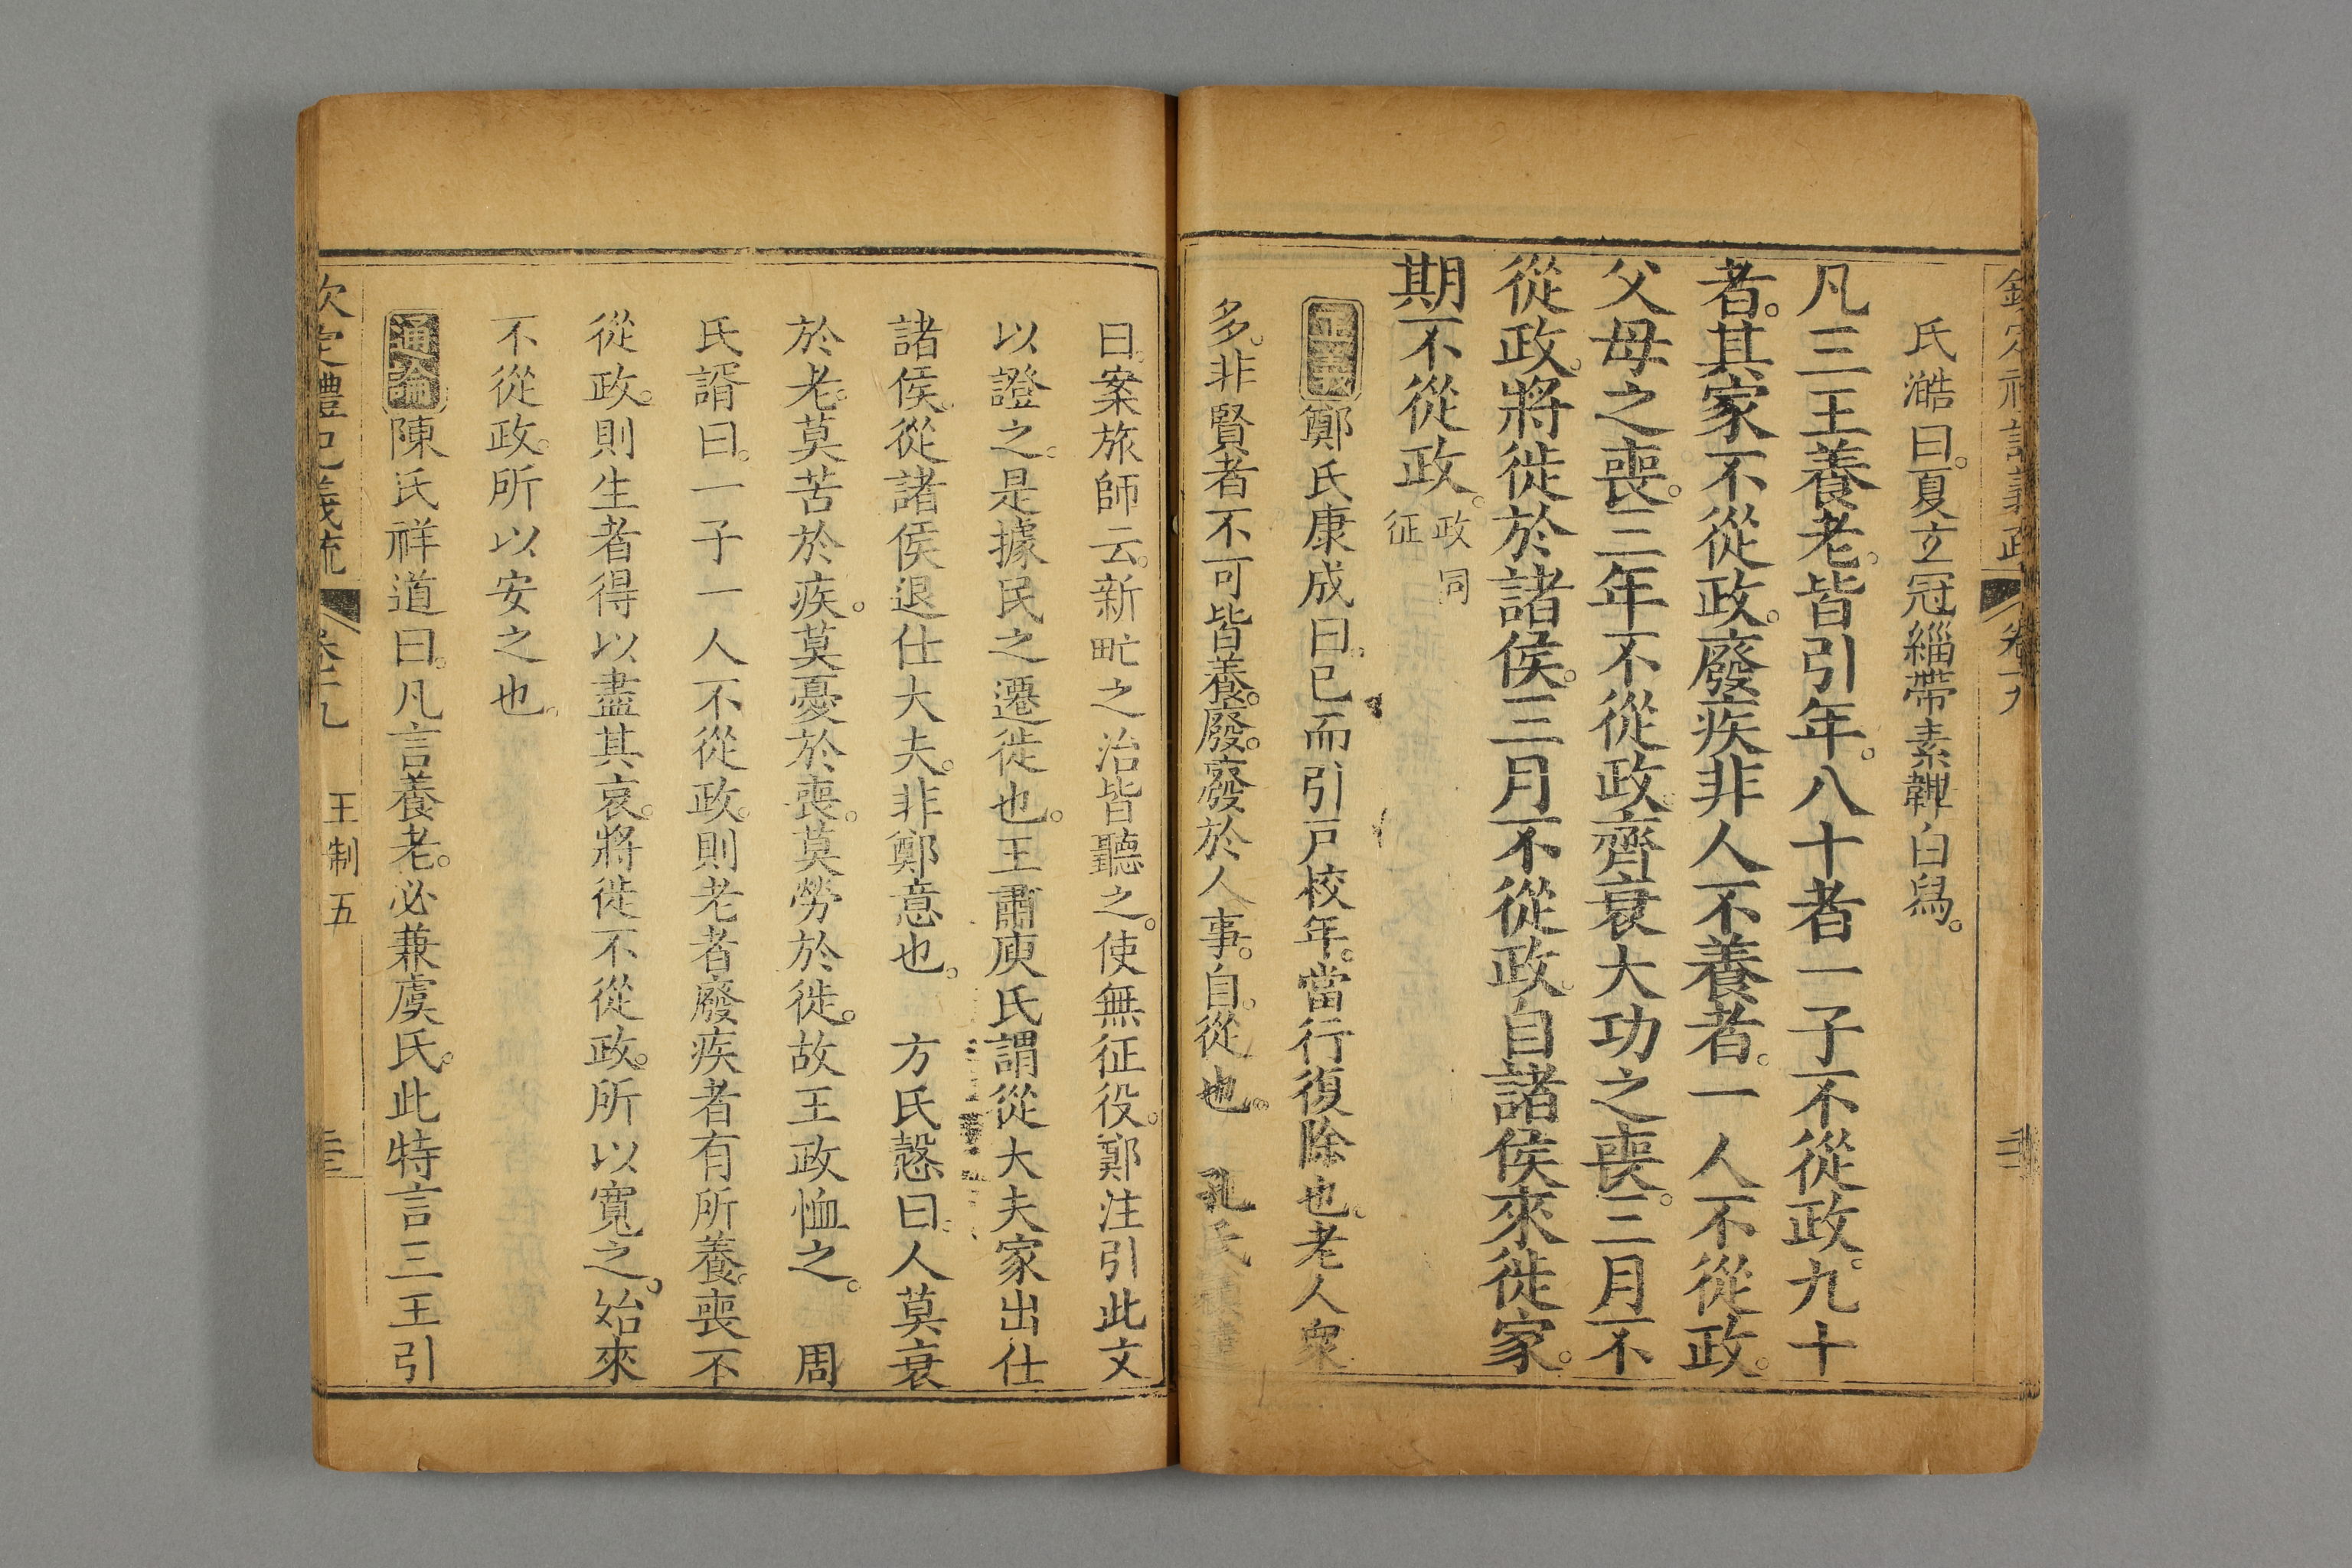 氏澔曰。夏立冠緇帶素韠白舄。
凡三王養老。皆引年。八十者一子不從政。九十
者。其家不從政。廢疾非人不養者。一人不從政。
父母之喪。三年不從政。齊衰大功之喪。三月不
從政。將徙於諸侯。三月不從政。自諸侯來徙家。
期不從政。政同
征
正義鄭氏康成曰。已而引戸校年。當行復除也。老人衆
多。非賢者不可皆養。廢。廢於人事。自。從也。 孔氏穎達
曰。案旅師云。新甿之治皆聽之。使無征役。鄭注引此文
以證之。是據民之遷徙也。王肅庾氏謂從大夫家出仕
諸侯。從諸侯退仕大夫。非鄭意也。 方氏慤曰。人莫衰
於老。莫苦於疾。莫憂於喪。莫勞於徙。故王政恤之。 周
氏諝曰。一子一人不從政。則老者廢疾者有所養。喪不
從政。則生者得以盡其哀。將徙不從政。所以寬之。始來
不從政。所以安之也。
通論陳氏祥道曰。凡言養老。必兼虞氏。此特言三王引
欽定禮記義疏 卷十九 王制五